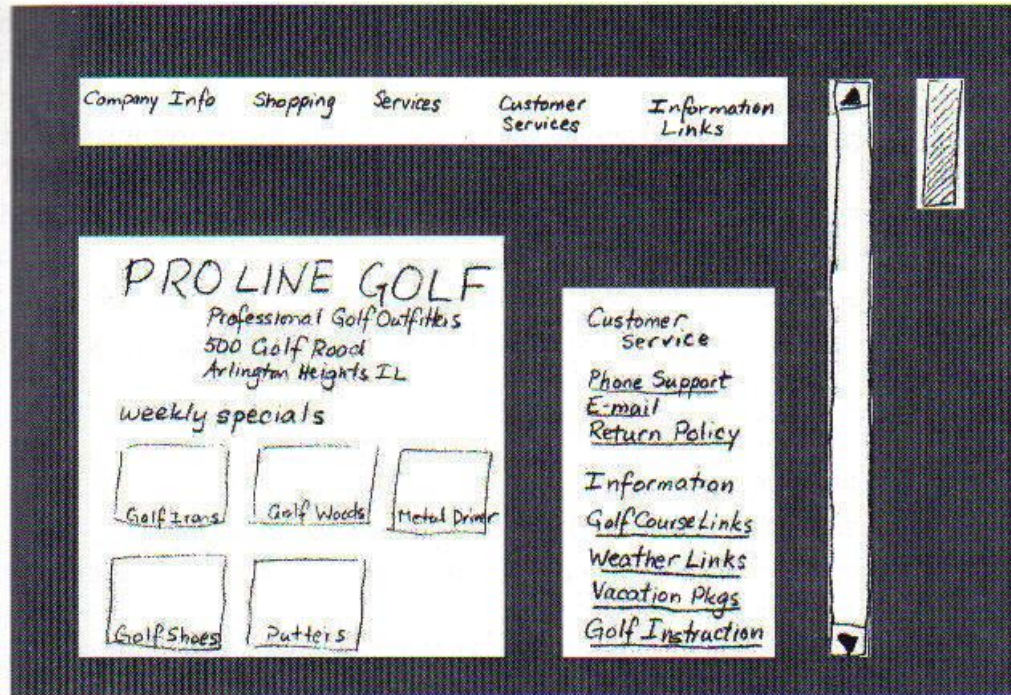 Company Info Shopping Services Customer Services Information Links
PRO LINE GOLF
Professional Golf Outfitters
500 Golf Road
Arlington Heights IL
weekly specials
Golf Irons Golf Woods Metal Driver
Golf Shoes Putters
Customer
Service
Phone Support
E-mail
Return Policy
Information
Golf Course Links
Weather Links
Vacation Pkgs
Golf Instruction